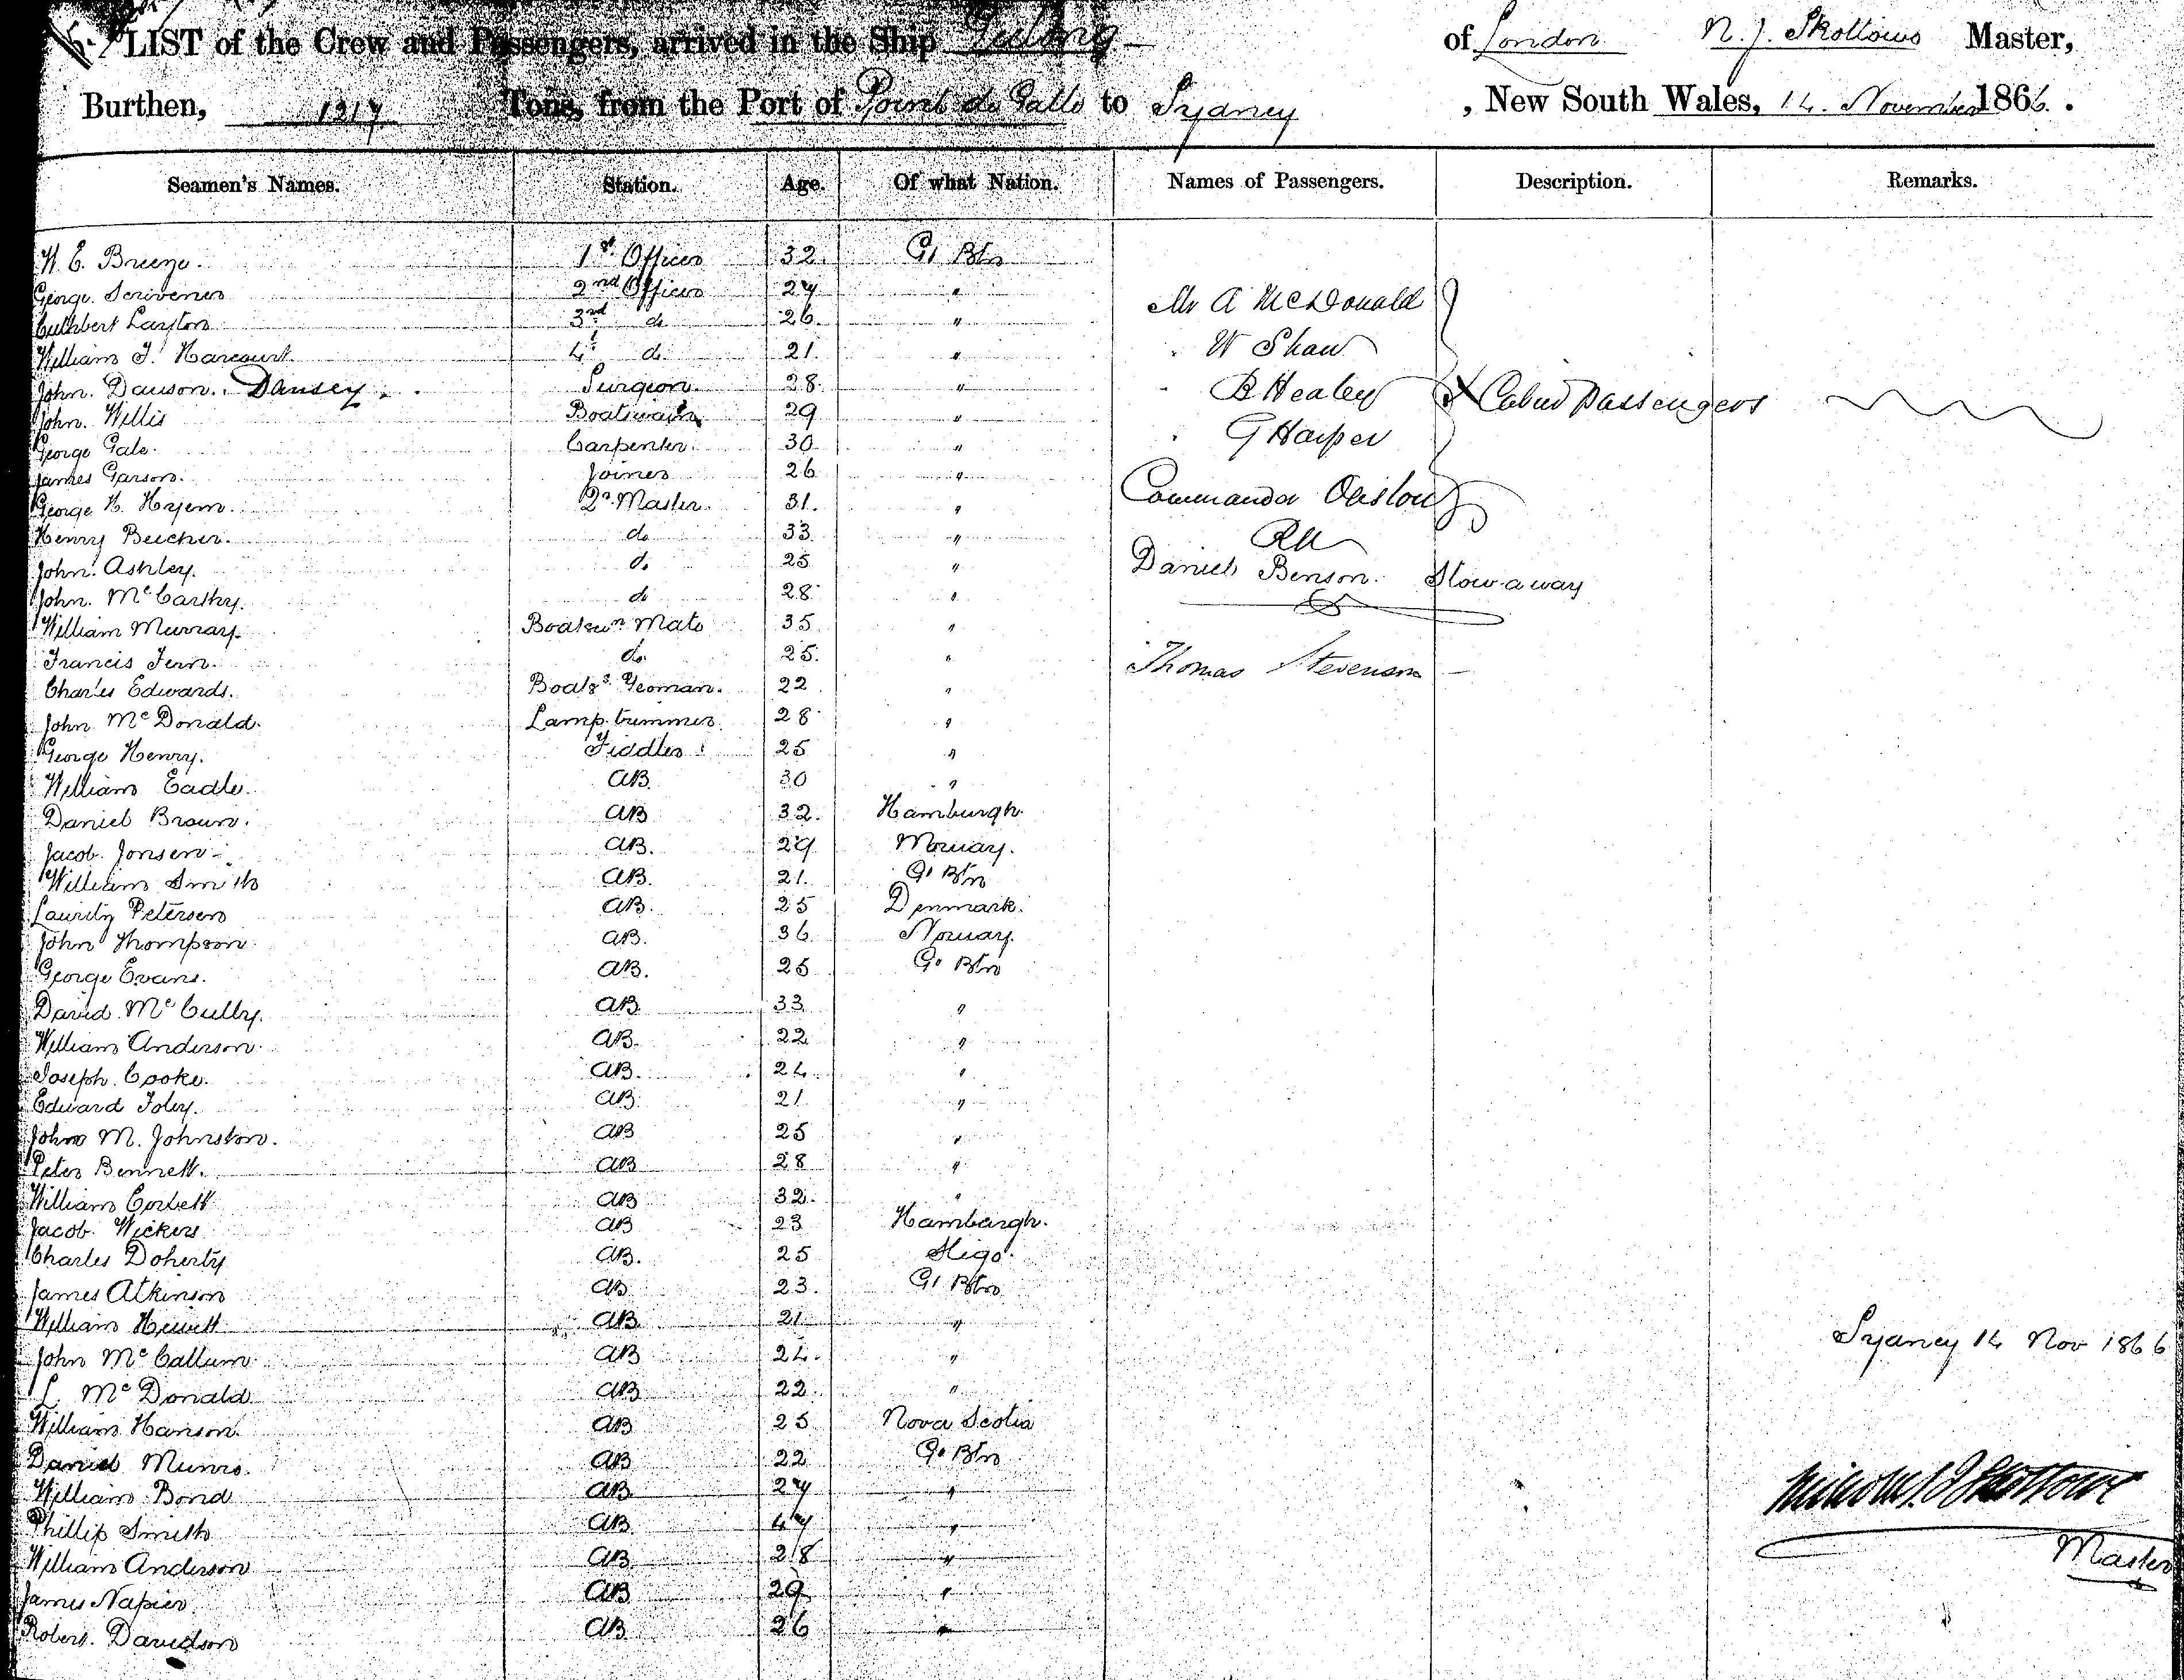 LIST of the Crew and Passengers, arrived in the Ship Geelong of London N. J. Skottowe Master,
Burthen, 1317 Tons, from the Port of Point de Galle to Sydney , New South Wales, 14. November 1866.
Seamen's Names. Station. Age. Of what Nation. Names of Passengers. Description. Remarks.
W. E. Breeze. 1st Officer 32 Gt Btn
George. Scrivener 2nd Officer 27 "
Cuthbert Layton 3rd do 26. "
William J. Harcourt 4th do 21. "
John. Dawson. Dansey. Surgeon 28. "
John. Willis Boatswain 29 "
George Gale. Carpenter. 30. "
James Garson. Joiner 26 "
George H. Hyem. Qr. Master. 31. "
Henry Beicher. do 33. "
John. Ashley. do 25 "
John. McCarthy. do 28. "
William Murray. Boatswn Mate 35 "
Francis Fern. do. 25. "
Charles Edwards. Boats. Yeoman. 22 "
John McDonald. Lamp trimmer 28 "
George Henry. Fiddler 25 "
William Eadle. AB 30 "
Daniel Braun. AB 32. Hamburgh.
Jacob. Jonsen. AB. 29 Norway.
William Smith AB. 21. Gt Btn
Lauritz Petersen AB. 25 Denmark.
John Thompson AB. 36 Norway.
George Evans. AB. 25 Gt Btn
David McCully. AB 33 "
William Anderson. AB. 22 "
Joseph. Cooke. AB. 24. "
Edward Foley. AB. 21 "
John M. Johnston. AB 25 "
Peter Bennett. AB 28 "
William Corbett AB 32. "
Jacob. Wickers AB 23 Hamburgh.
Charles Doherty AB. 25 Sligo.
James Atkinson AB 23. Gt Btn
William Hewitt AB 21 "
John McCallum. AB 24. "
L. McDonald AB 22. "
William Hanson. AB 25 Nova Scotia
Daniel Munro. AB 22 Gt Btn
William Bond AB 27 "
Phillip Smith AB 47 "
William Anderson AB 28 "
James Napier. AB 29 "
Robert. Davidson AB 26 "
Mr A McDonald
" W Shaw
" B Healey Cabin passengers
" G Harper
Commander Onslow
RN
Daniel Benson. Stowaway
Thomas Stevenson
Sydney 14 Nov 1866
Nicholas J Skottowe
Master